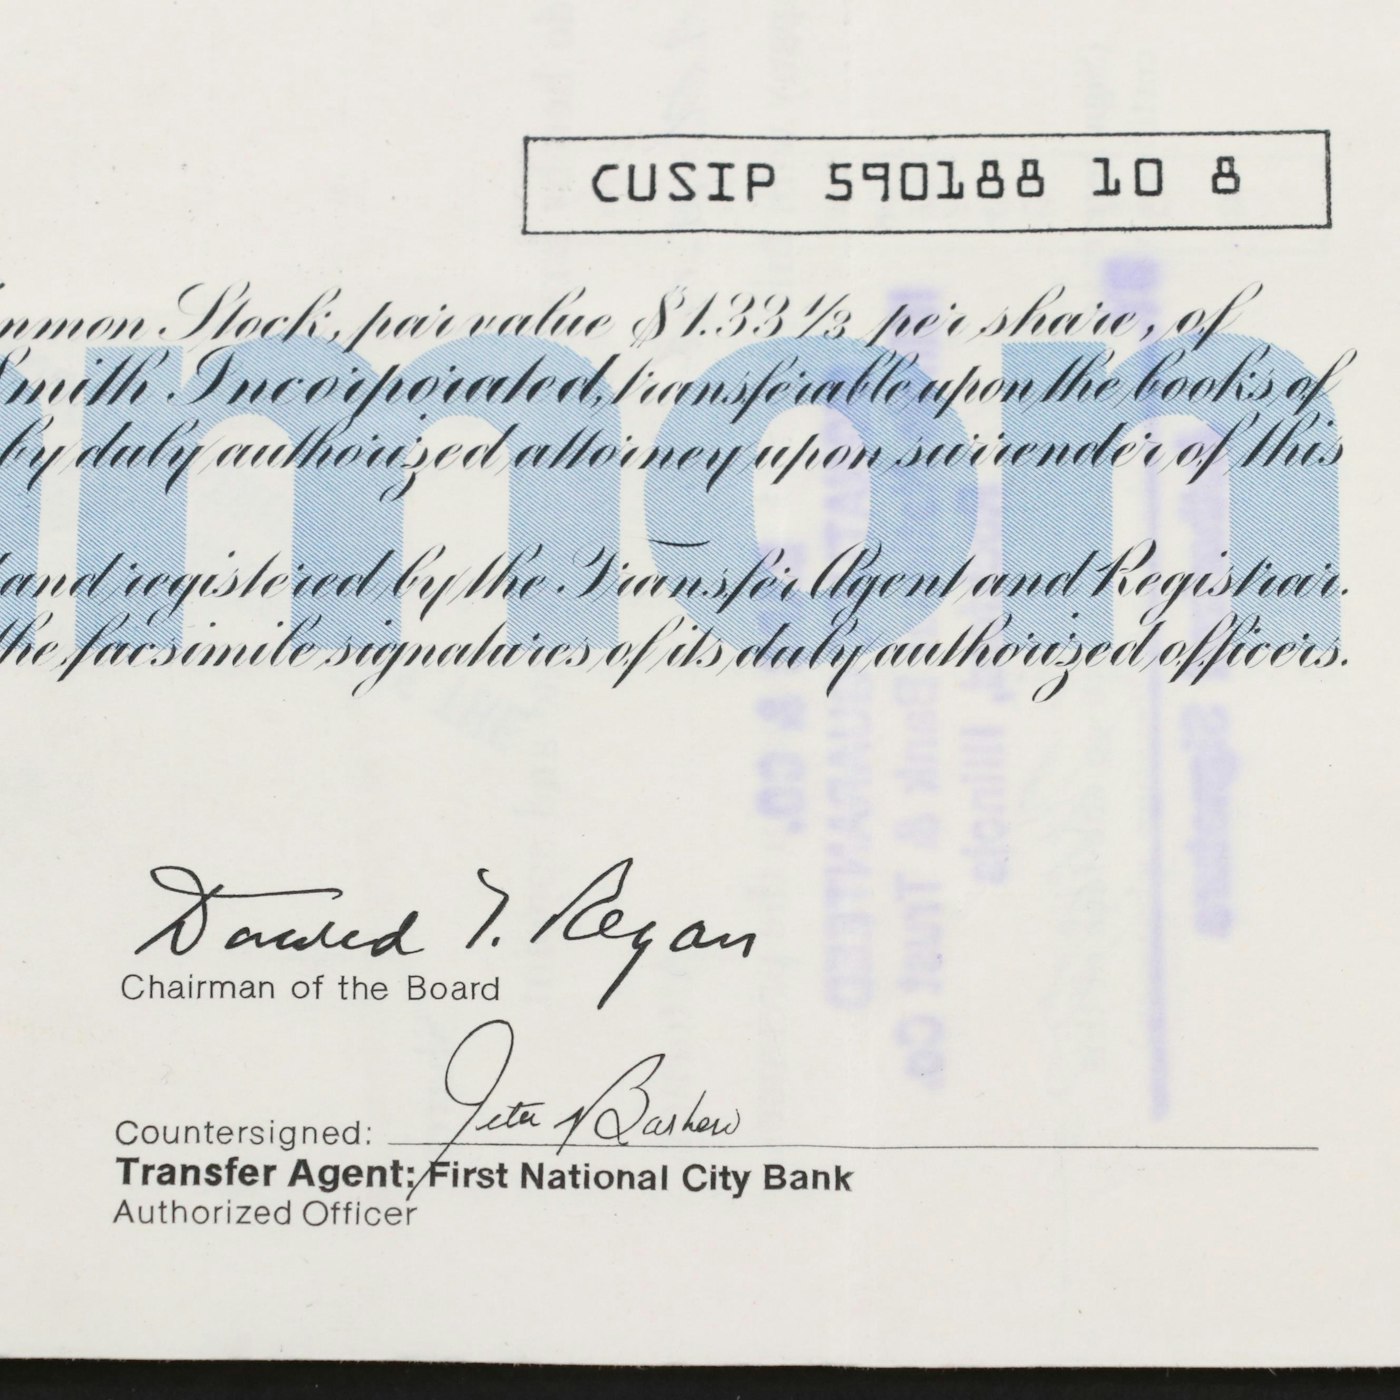 CUSIP 590188 10 8
mmon Stock, par value $1.33 1/3 per share, of
Smith Incorporated, transferable upon the books of
by duly authorized attorney upon surrender of this
and registered by the Transfer Agent and Registrar.
the facsimile signatures of its duly authorized officers.
mmon
Donald T. Regan
Chairman of the Board
Countersigned:
Transfer Agent: First National City Bank
Authorized Officer
& CO.
GUARANTEED
Bank & Trust Co
Illinois